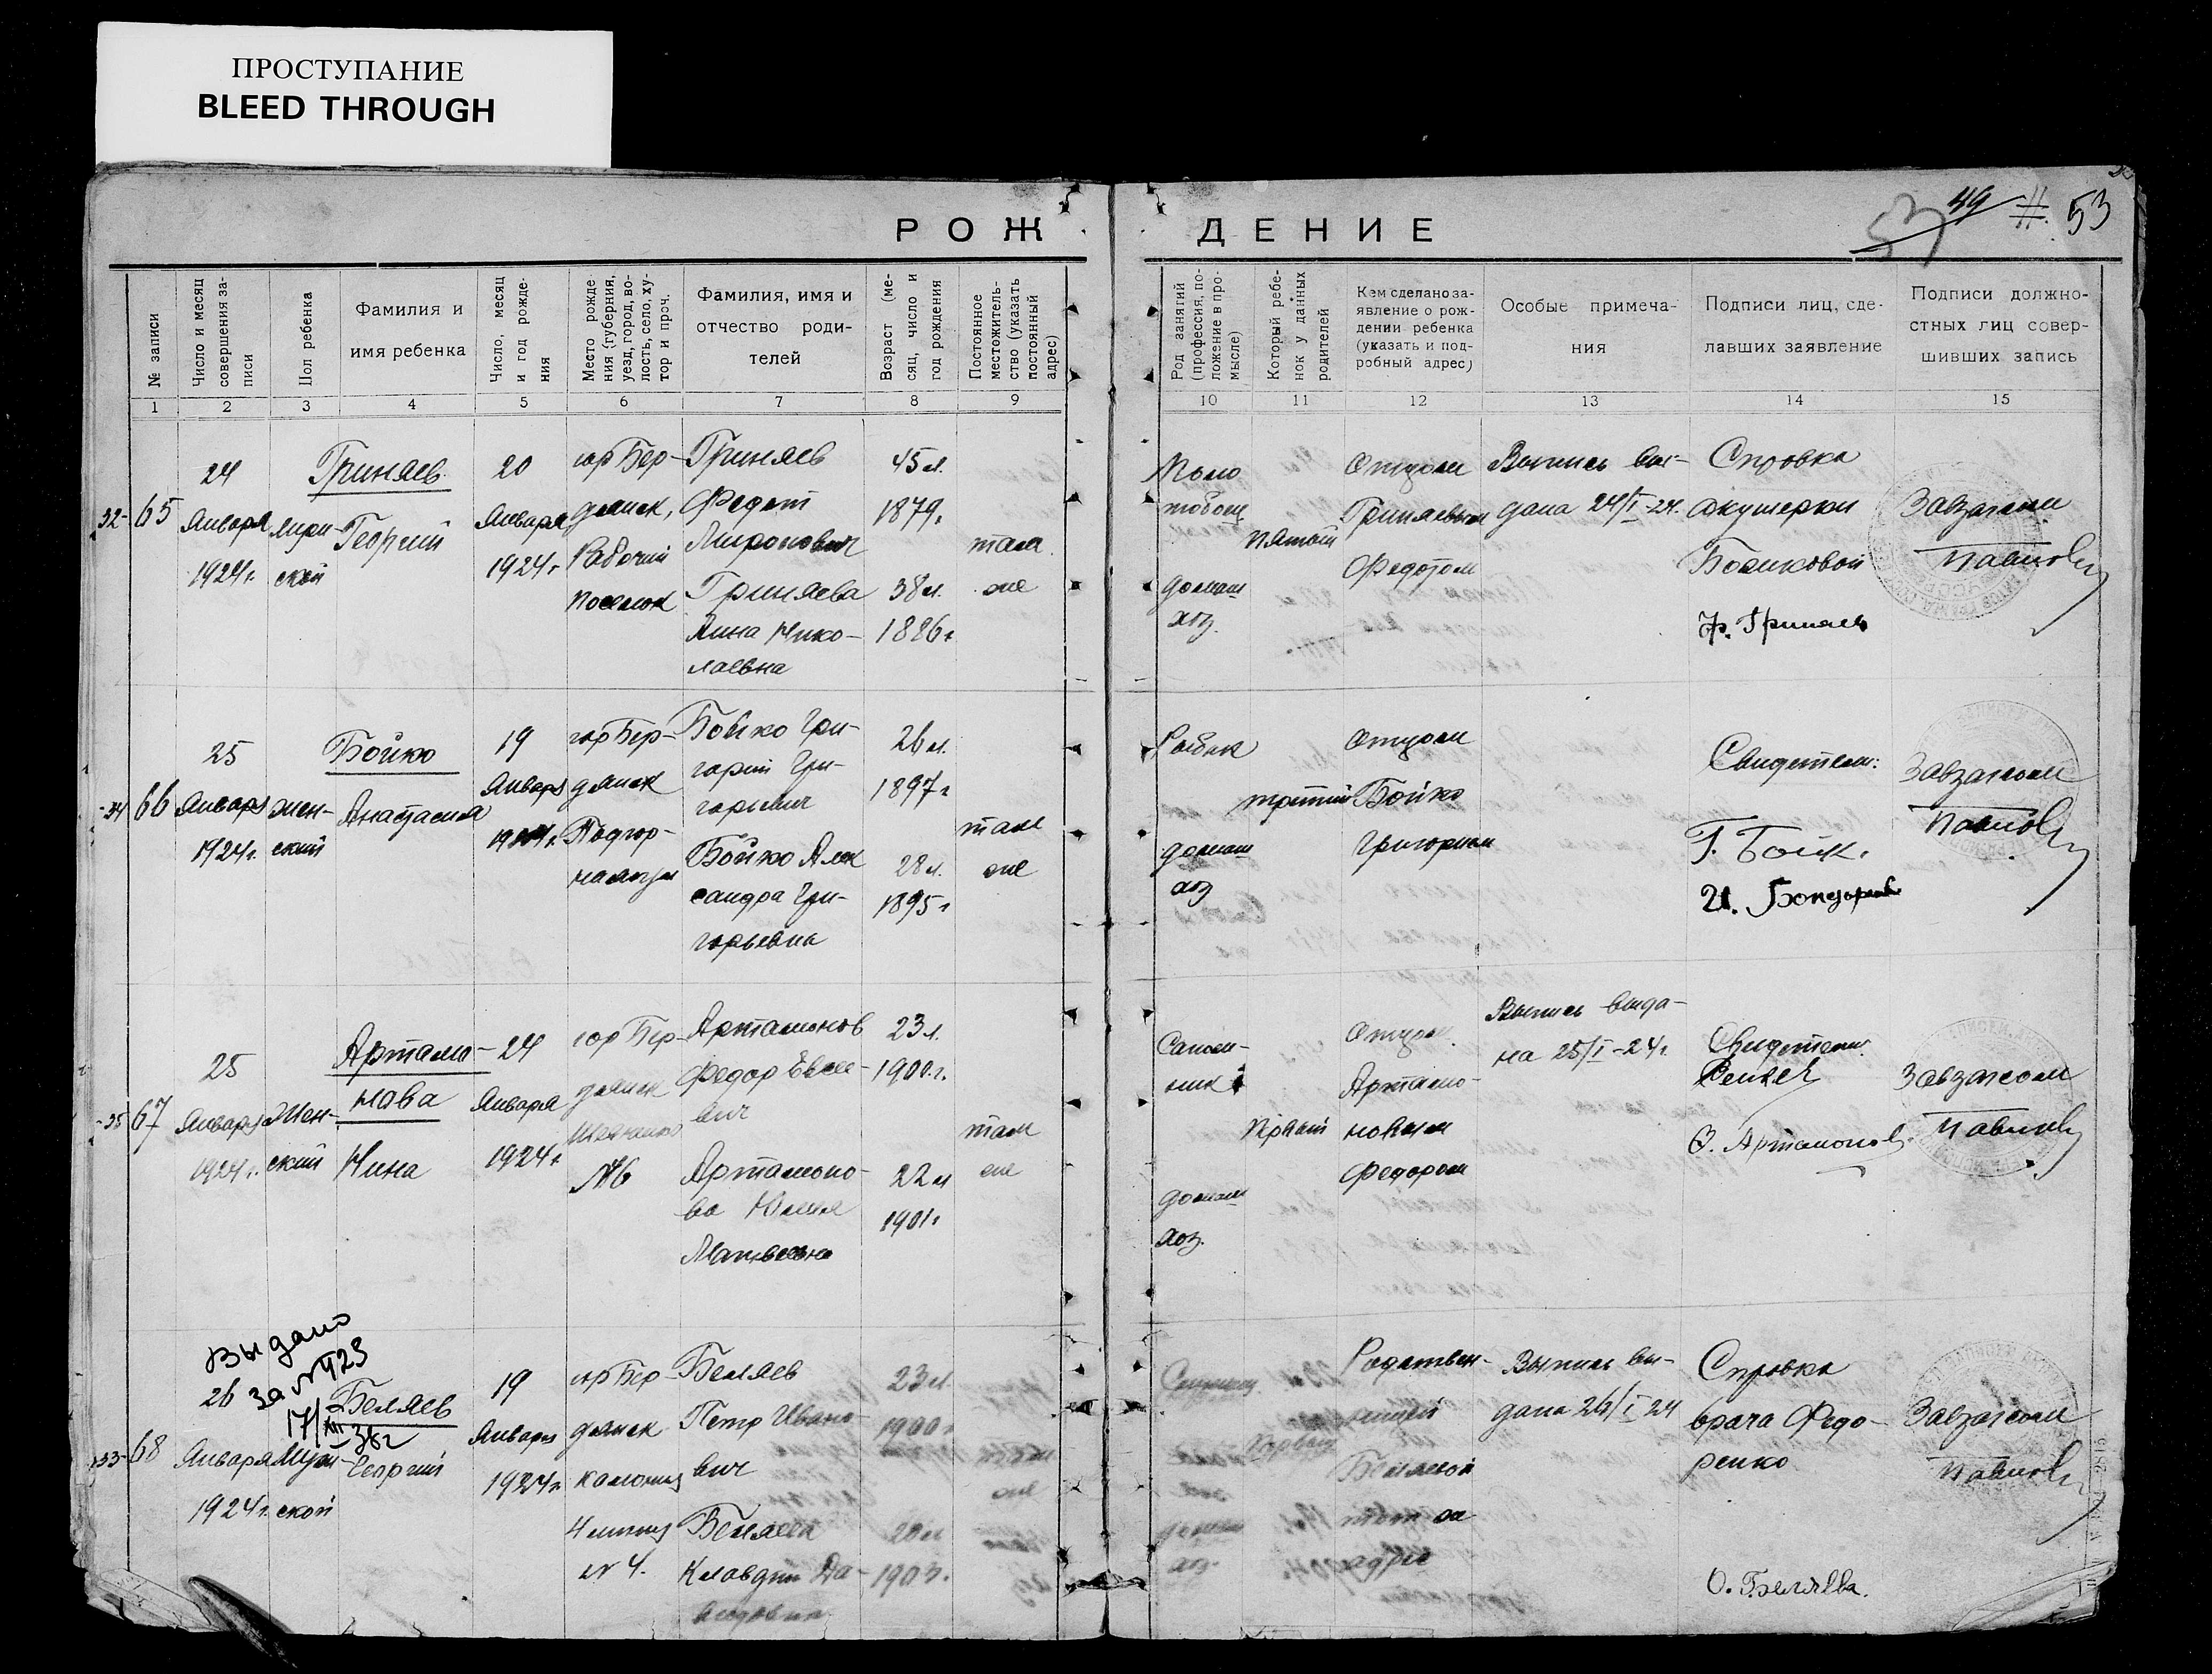 ПРОСТУПАНИЕ
BLEED THROUGH
РОЖДЕНИЕ
49 53
№ записи
Число и месяц
совершения за-
писи
Пол ребенка
Фамилия и
имя ребенка
Число, месяц
и год рожде-
ния
Место рожде
ния (губерния,
уезд, город, во-
лость, село, ху-
тор и проч.
Фамилия, имя и
отчество роди-
телей
Возраст (ме-
сяц, число и
год рождения
Постоянное
местожитель-
ство (указать
постоянный
адрес)
Род занятий
(профессия, по-
ложение в про-
мысле)
Который ребе-
нок у данных
родителей
Кем сделано за-
явление о рож-
дении ребенка
(указать и под-
робный адрес)
Особые примеча-
ния
Подписи лиц, сде-
лавших заявление
Подписи должно-
стных лиц совер-
шивших запись
1 2 3 4 5 6 7 8 9 10 11 12 13 14 15
32- 65
24
Января
1924г.
муж-
ской
Гриняев
Георгий
20
Января
1924г
гор Бер-
дянск,
Рабочий
поселок
Гриняев
Федот
Миронович
Гриняева
Анна Нико-
лаевна
45 л.
1879г
38 л.
1886г
там
же
домаш
хоз.
пятый
Отцом
Гриняевым
Федотом
Выпись вы-
дана 24/I-24.
Справка
акушерки
Божковой
Ф. Гриняев
Завзагсом
Павлов
-34 66
25
Январь
1924г.
жен-
ский
Бойко
Анастасия
19
Январь
1924г.
гор Бер-
дянск
Подгор-
Бойко Гри-
горий Гри-
горьевич
Бойко Алек
сандра Гри-
горьевна
26 л.
1897г
28 л.
1895г
там
же
Рыбак
домаш
хоз
третий
Отцом
Бойко
Григорием
Свидетели:
Г. Бойк.
И.
Завзагсом
Павлов
-35 67
25
Январь
1924г.
Жен-
ский
Артамо-
нова
Нина
24
Января
1924г
гор Бер-
дянск
№6
Артамонов
Федор Евсе-
вич
Артамоно-
ва Юлия
Матвеевна
23 л.
1900г.
22 л
1901г
там
же
Сапож-
ник
домаш
хоз.
Первый
Отцом
Артамо-
новым
Федором
Выпись выда-
на 25/I-24г.
Свидетели
Ф. Артамонов
Завзагсом
Павлов
Выдано
за №423
17/XII-36г
33- 68
26
Января
1924г.
Муж-
ской
Беляев
Георгий
19
Январь
1924г.
гор Бер-
дянск
колония
4 линия
№ 4.
Беляев
Петр Ивано-
вич
Беляева
Клавдия Да-
23 л.
1900г
20 л
1903г.
там
же
домаш
хоз.
Первый
Родствен-
ницей
Беляевой
тот же
адрес
Выпись вы-
дана 26/I-24
Справка
врача Федо-
ренко
О. Беляева.
Завзагсом
Павлов